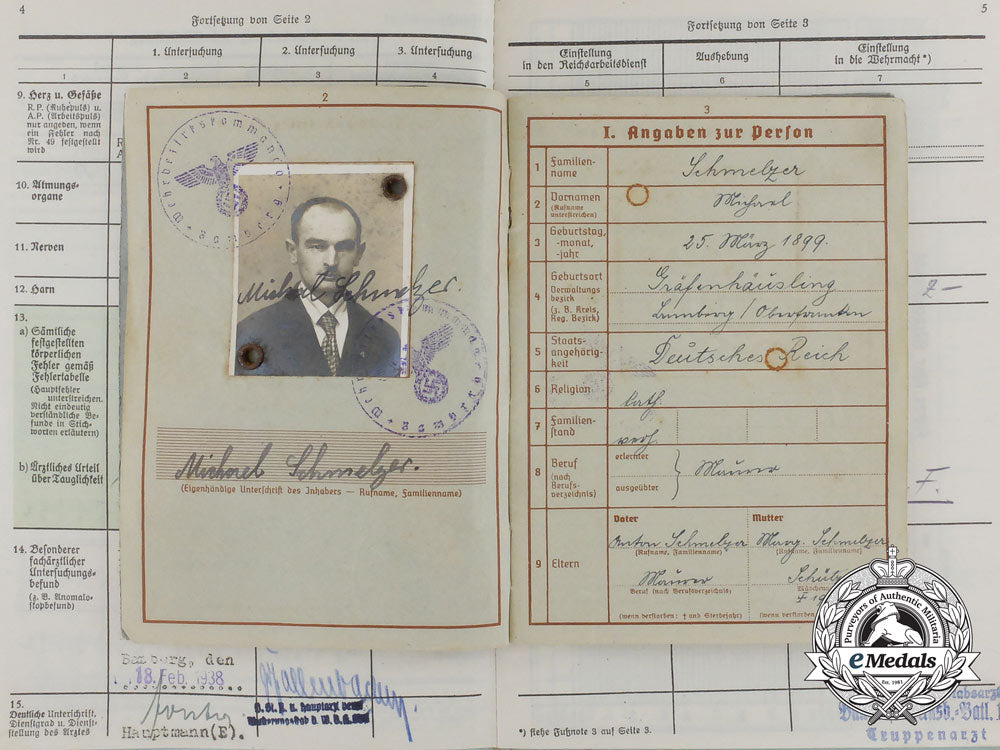 4
Fortsetzung von Seite 2
1. Untersuchung
2. Untersuchung
3. Untersuchung
1
2
3
4
9. Herz u. Gefäße
R.P. (Ruhepuls) u.
A.P. (Arbeitspuls)
nur angeben, wenn
ein Fehler nach
Nr. 49 festgestellt
wird
10. Atmungs-
organe
11. Nerven
12. Harn
13.
a) Sämtliche
festgestellten
körperlichen
Fehler gemäß
Fehlertabelle
(Hauptfehler
unterstreichen.
Nicht eindeutig
verständliche Be-
funde in Stich-
worten erläutern)
b) Ärztliches Urteil
über Tauglichkeit
14. Besonderer
fachärztlicher
Untersuchungs-
befund
(z. B. Anomalo-
skopbefund)
Bamberg, den
18. Feb. 1938
Hauptmann(E).
15.
Deutliche Unterschrift,
Dienstgrad u. Dienst-
stellung des Arztes
2
Wehrbezirkskommando
Michael Schmelzer.
Michael Schmelzer.
(Eigenhändige Unterschrift des Inhabers — Rufname, Familienname)
5
Fortsetzung von Seite 3
Einstellung
in den Reichsarbeitsdienst
Aushebung
Einstellung
in die Wehrmacht*)
5
6
7
3
I. Angaben zur Person
1 Familien-
name
Schmelzer
2 Vornamen
(Rufname
unterstreichen)
Michael
3 Geburtstag,
-monat,
-jahr
25. März 1899.
4 Geburtsort
Verwaltungs-
bezirk
(z. B. Kreis,
Reg. Bezirk)
Gräfenhäusling
Bamberg / Oberfranken
5 Staats-
angehörig-
keit
Deutsches Reich
6 Religion
kath.
7 Familien-
stand
verh.
8 Beruf
(nach
Berufs-
verzeichnis)
erlernter
ausgeübter
Maurer
9 Eltern
Vater
Mutter
Anton Schmelzer
Marg. Schmelzer
(Rufname, Familienname)
(Rufname, Familienname)
Maurer
Beruf (nach Berufsverzeichnis)
(wenn verstorben: † und Sterbejahr)
(wenn verstorben
2-
F.
*) siehe Fußnote 3 auf Seite 3.
Truppenarzt
Purveyors of Authentic Militaria
eMedals
Est. 1981